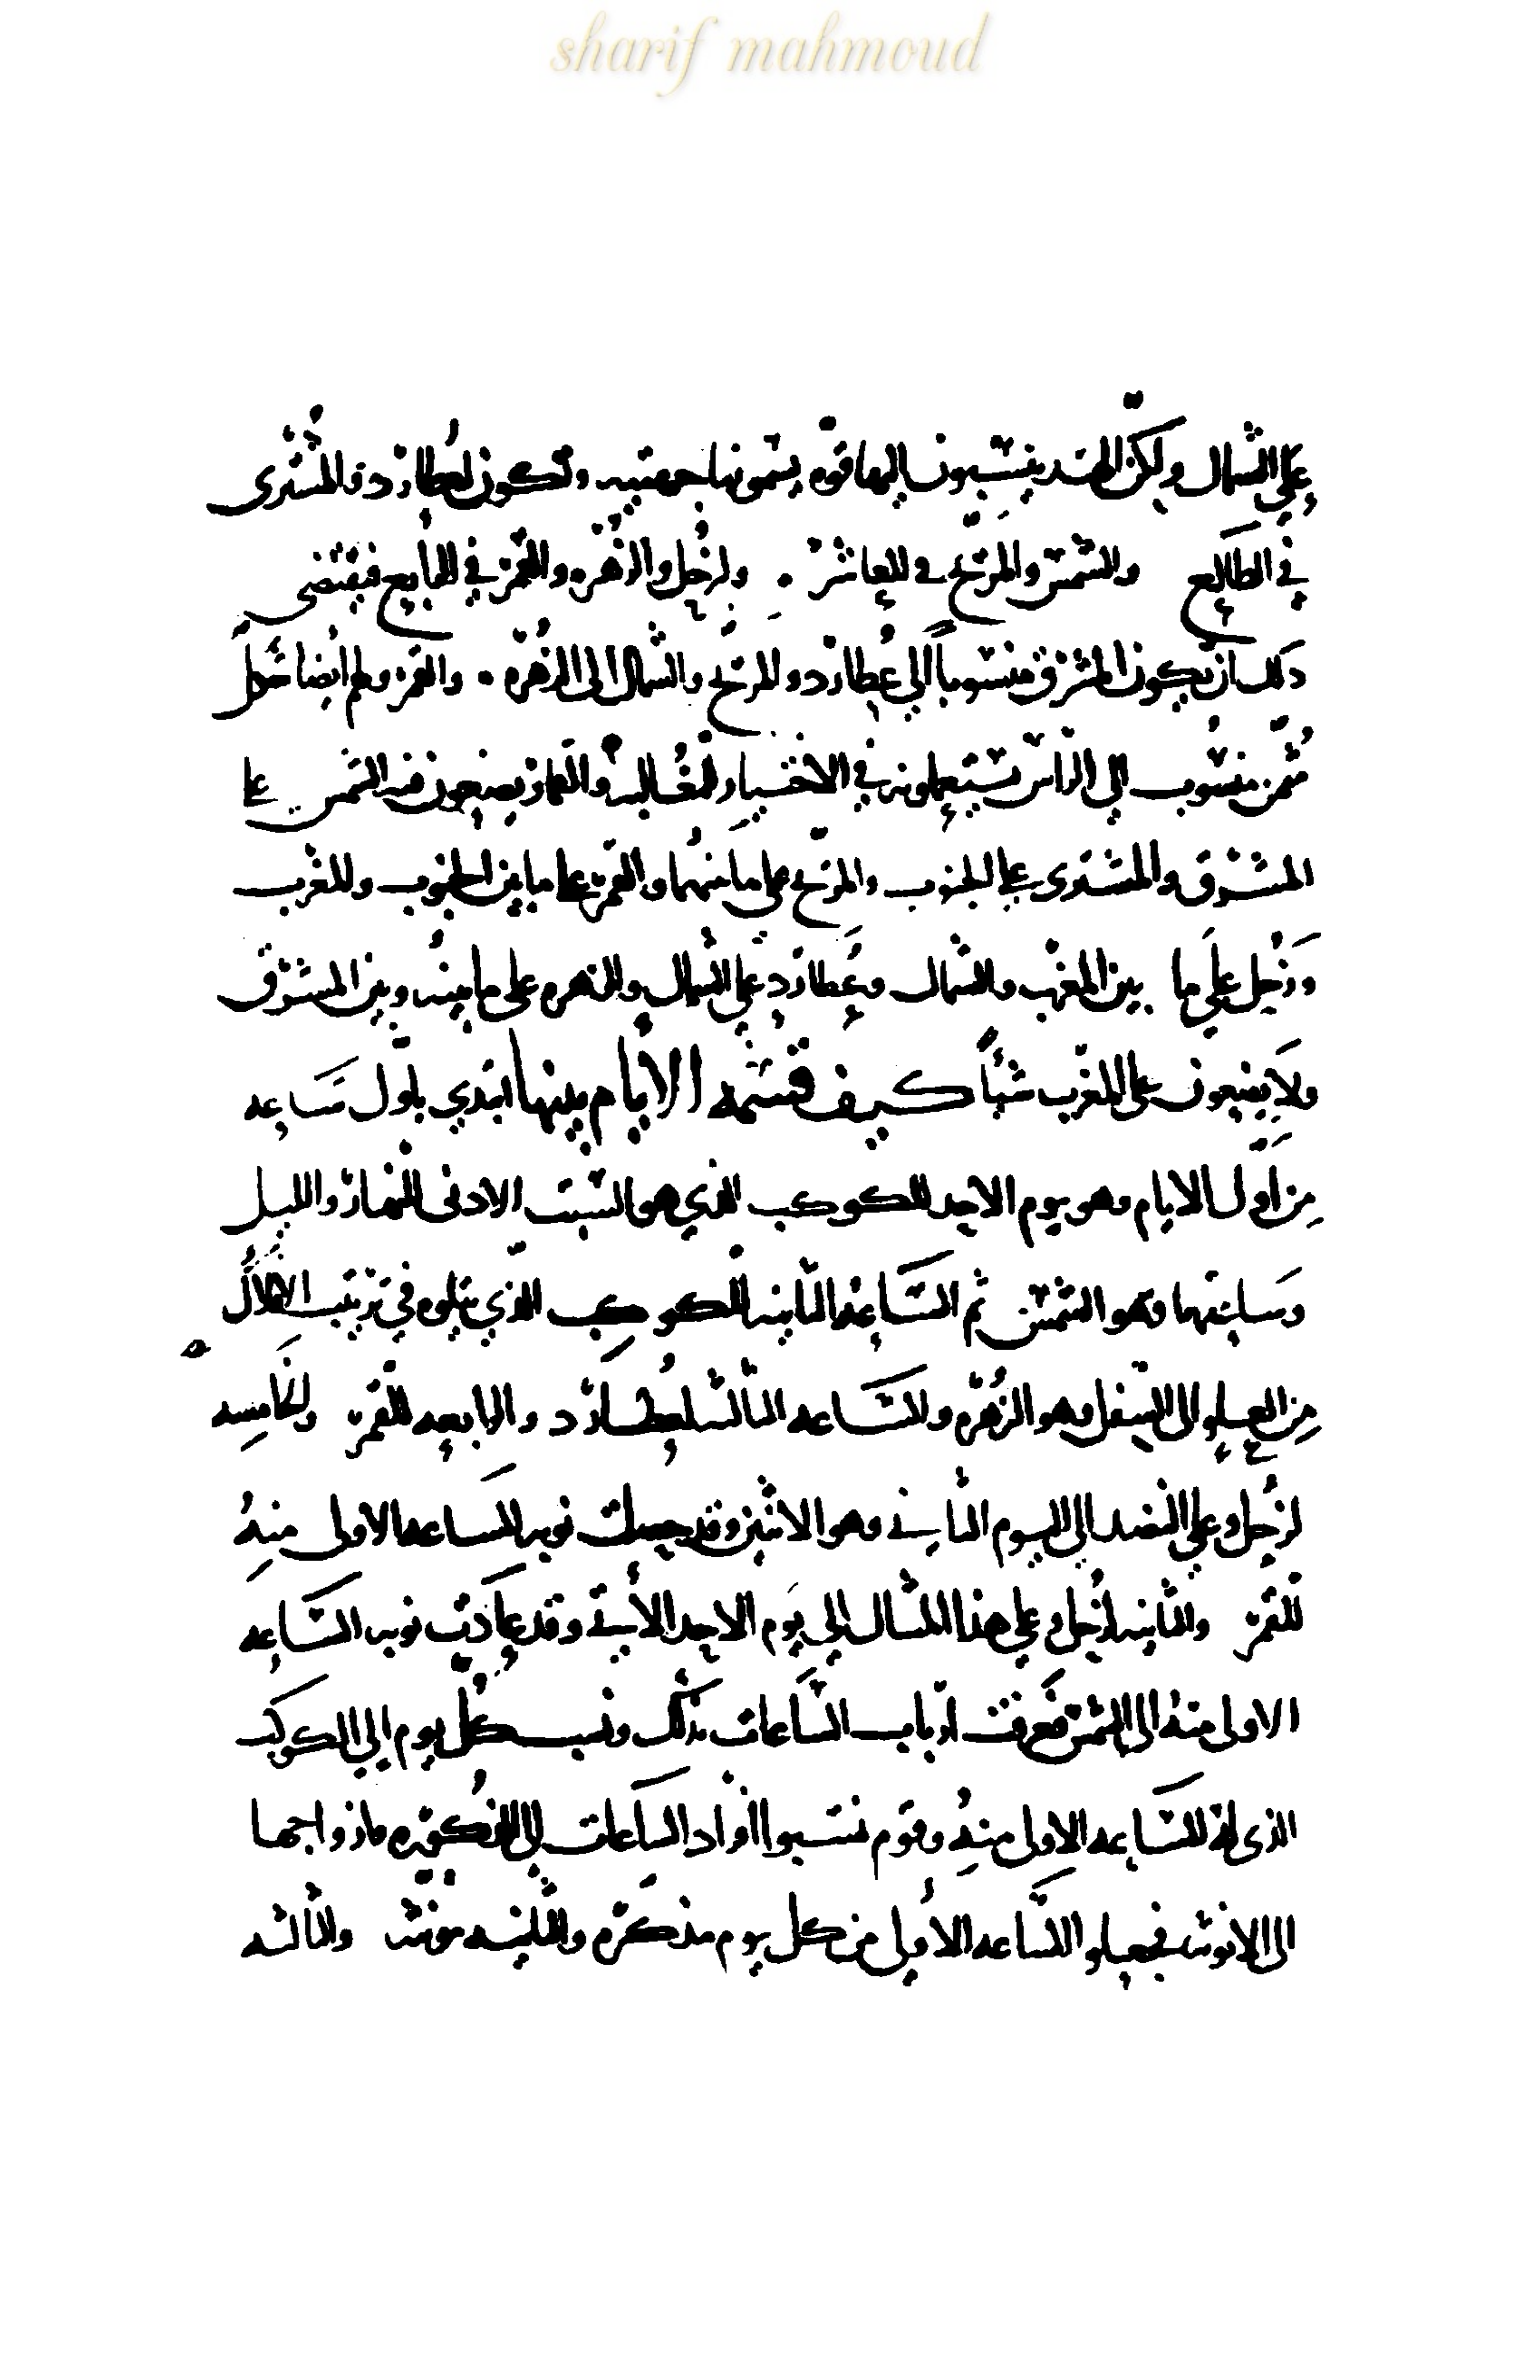 sharif mahmoud
على الشمال ولكن الهند ينسبون اليها قوه يسمونها جهتيه وتكون لعطارد والمشترى
في الطالع وللشمس والمريخ في العاشر . ولزحل والزهره والقمر في السابع فيقتضى
ذلك ان يكون المشرق منسوباً الي عطارد وللمريخ والشمال الى الزهره . والقمر ولهم ايضا شكل
مثمن منسوب الي الراس يستعملونه في الاختيار للمغالبه والقمار يضعون فيه الشمس على
المشرق والمشترى على الجنوب والمريخ على ما بينهما والقمر على ما بين الجنوب والمغرب
وزحل على ما بين المغرب والشمال وعطارد على الشمال والزهره على ما بينه وبين المشرق
ولا يضعون على المغرب شيئاً كيف قسمه الايام بينها ابتدي باول ساعه
من اول الايام وهو يوم الاحد للكوكب الذي هو السبب الادنى للنهار والليل
وسابقهما وهو الشمس ثم الساعه الثانيه للكوكب الذي يتلوه في ترتيب الافلاك
من العلو الى السفل وهو الزهره والساعه الثالثه لعطارد والرابعه للقمر والخامسه
لزحل وعلي النضد الي اليوم الثاني وهو الاثنين وقد حصلت نوبه الساعه الاولى منه
للقمر والثانيه لزحل وعلي هذا المثال الي يوم الاحد الاتي وقد عادت نوبه الساعه
الاولى منه الى الشمس فعرفت ارباب الساعات بذلك ونسب كل يوم الي الكوكب
الذى له الساعه الاولى منه وقوم نسبوا افراد الساعات الى الذكوره وازواجها
الى الانوثه فجعلوا الساعه الاولى من كل يوم مذكره والثانيه مونثه والثالثه